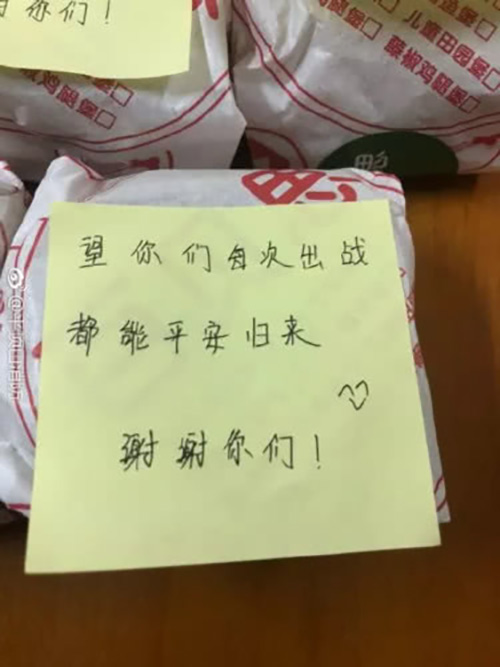 你们！
藤椒鸡腿堡□
儿童田园堡□
藤椒鸡腿堡□
望你们每次出战
都能平安归来
谢谢你们！